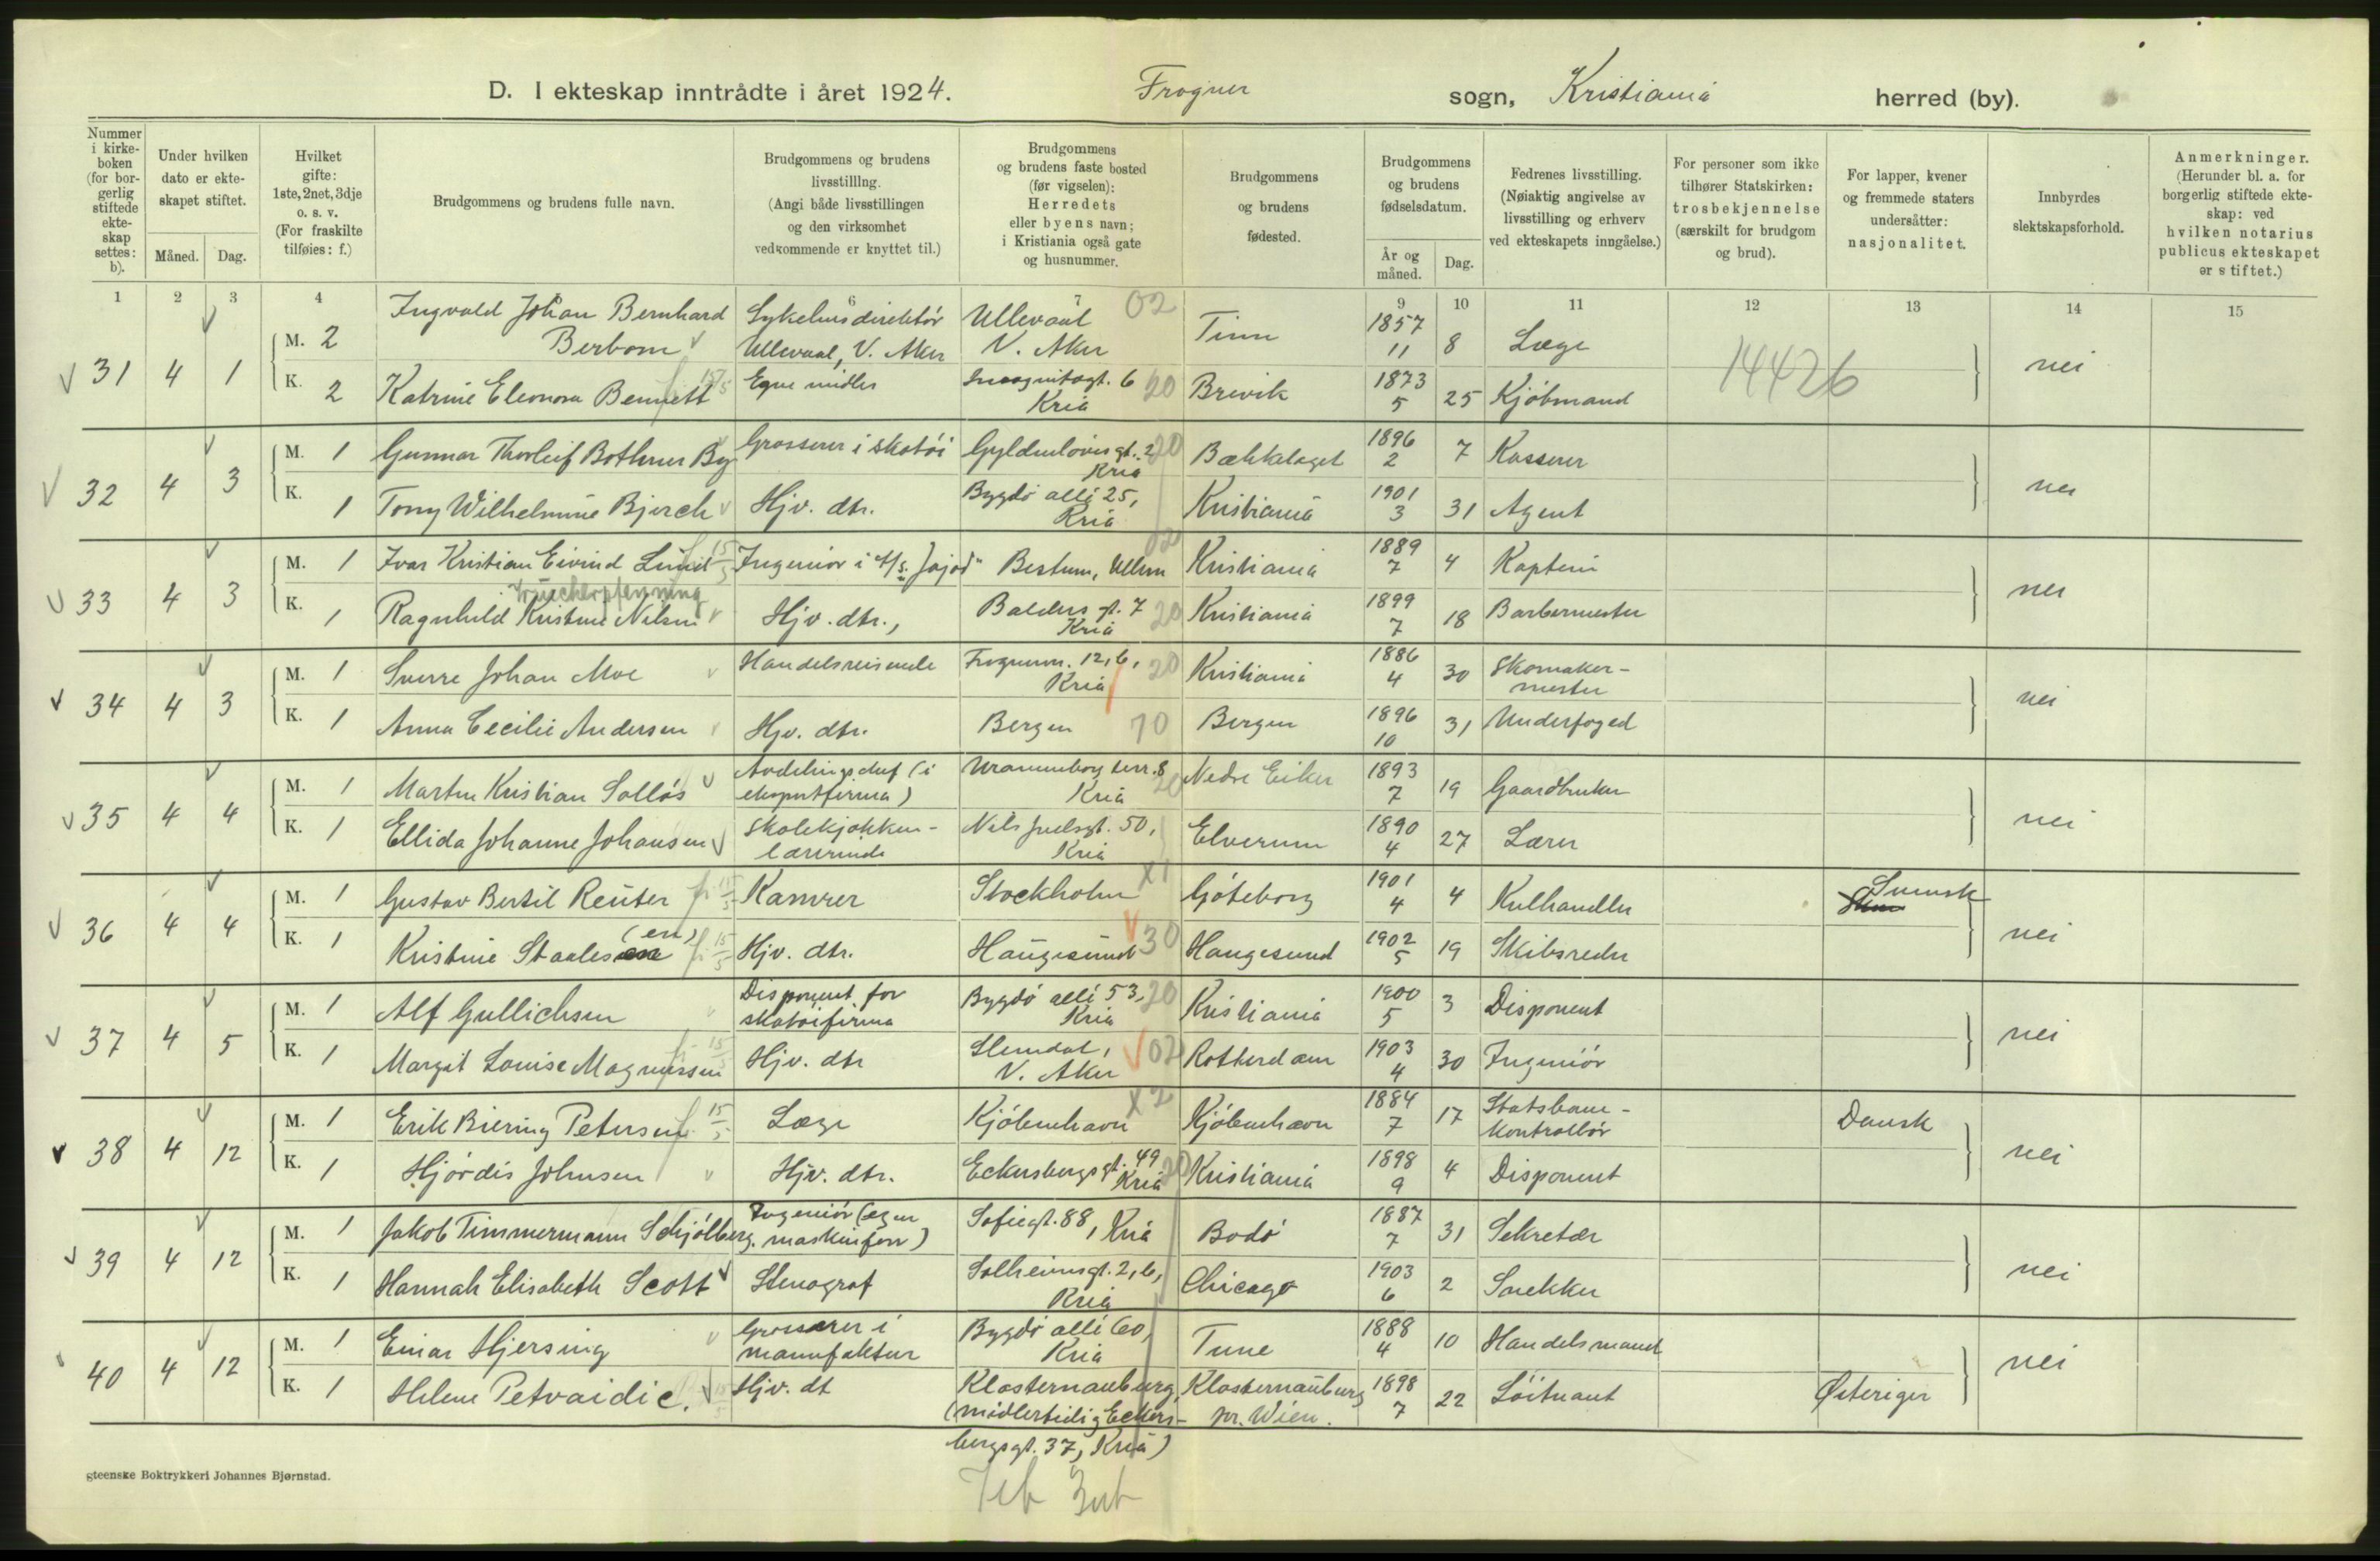 D. I ekteskap inntrådte i året 1924. Frogner sogn, Kristiania herred (by).
Nummer i kirke-boken (for bor-gerlig stiftede ekte-skap settes: b).
Under hvilken dato er ekte-skapet stiftet. Måned. Dag.
Hvilket gifte: 1ste, 2net, 3dje o. s. v. (For fraskilte tilføies: f.)
Brudgommens og brudens fulle navn.
Brudgommens og brudens livsstilling. (Angi både livsstillingen og den virksomhet vedkommende er knyttet til.)
Brudgommens og brudens faste bosted (før vigselen): Herredets eller byens navn; i Kristiania også gate og husnummer.
Brudgommens og brudens fødested.
Brudgommens og brudens fødselsdatum. År og måned. Dag.
Fedrenes livsstilling. (Nøiaktig angivelse av livsstilling og erhverv ved ekteskapets inngåelse.)
For personer som ikke tilhører Statskirken: trosbekjennelse (særskilt for brudgom og brud).
For lapper, kvener og fremmede staters undersåtter: nasjonalitet.
Innbyrdes slektskapsforhold.
Anmerkninger. (Herunder bl. a. for borgerlig stiftede ekte-skap: ved hvilken notarius publicus ekteskapet er stiftet.)
1 2 3 4 6 7 9 10 11 12 13 14 15
31 4 1 M. 2 Ingvald Johan Bernhard Berbom Sykehusdirektór Ullevaal, V. Aker Ullevaal V. Aker 02 Tinn 1857 11 8 Læge 14426 nei
K. 2 Katrine Eleonora Bennett 15/5 Egne midler Incognitogt. 6 Kria 20 Brevik 1873 5 25 Kjóbmand
32 4 3 M. 1 Gunnar Thorleif Bothner By Grosserer i skotói Gyldenlóves gt. 2 Kria 20 Bækkelaget 1896 2 7 Kasserer nei
K. 1 Tony Wilhelmine Bjerch Hjv. dtr. Bygdó allé 25, Kria Kristiania 1901 3 31 Agent
33 4 3 M. 1 Ivar Kristian Eivind Lund 15/5 Ingeniór i A/s. Jajod" Bestum, Ullern 02 Kristiania 1889 7 4 Kaptein nei
K. 1 Ragnhild Kristine Nilsen Hjv. dtr., Balders gt. 7 Kria 20 Kristiania 1899 7 18 Barbermester
34 4 3 M. 1 Sverre Johan Moe Handelsreisende Frognerv. 12, b, Kria 20 Kristiania 1886 4 30 Skomaker-mester nei
K. 1 Anna Cecilie Andersen Hjv. dtr. Bergen 70 Bergen 1896 10 31 Underfoged
35 4 4 M. 1 Martin Kristian Sollós Avdelingschef (i eksportfirma) Uranienborg terr. 8 Kria 20 Nedre Eiker 1893 7 19 Gaardbruker nei
K. 1 Ellida Johanne Johansen Skolekjókken-lærerinde Nils Juelsgt. 50, Kria Elverum 1890 4 27 Lærer
36 4 4 M. 1 Gustav Bertil Reuter 15/5 Kamrer Stockholm X1 Góteborg 1901 4 4 Kulhandler Svensk nei
K. 1 Kristine Staalesen (en) 15/5 Hjv. dtr. Haugesund 30 Haugesund 1902 5 19 Skibsreder
37 4 5 M. 1 Alf Gullichsen Disponent for skotóifirma Bygdó allé 53, Kria 20 Kristiania 1900 5 3 Disponent nei
K. 1 Margit Louise Magnussen 15/5 Hjv. dtr Slemdal, V. Aker 02 Rotterdam 1903 4 30 Ingeniór
38 4 12 M. 1 Erik Biering Petersen 15/5 Læge Kjóbenhavn X2 Kjóbenhavn 1884 7 17 Statsbane-kontrollór Dansk nei
K. 1 Hjórdis Johnsen Hjv. dtr. Eckersbergs gt. 49 Kria 20 Kristiania 1898 9 4 Disponent
39 4 12 M. 1 Jakob Timmermann Schjólberg Ingeniór (egen maskinforr) Sofiegt. 88, Kria Bodó 1887 7 31 Sekretær nei
K. 1 Hannah Elisabeth Scott Stenograf Solheimsgt. 2, b, Kria Chicago 1903 6 2 Snekker
40 4 12 M. 1 Einar Hjersing Grosserer i manufaktur Bygdó allé 60, Kria Tune 1888 4 10 Handelsmand nei
K. 1 Helene Petvaidic. Hjv. dt Klosternauburg (midlertidig Eckers-Klosternauburg nr. Wien. 1898 7 22 Lóitnant Østeriger
bergsgt. 37, Kria)
gteenske Boktrykkeri Johannes Bjørnstad.